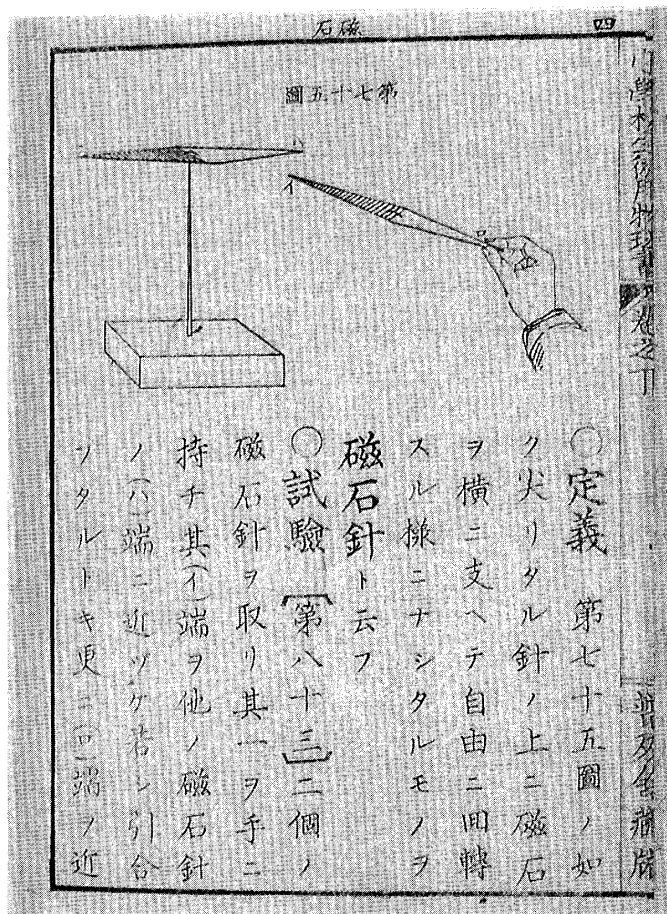 四
磁石
第七十五圖
ハ
イ
ロ
〇定義　第七十五圖ノ如
ク尖リタル針ノ上ニ磁石
ヲ横ニ支ヘテ自由ニ回轉
スル様ニナシタルモノヲ
磁石針ト云フ
〇試驗〔第八十三〕二個ノ
磁石針ヲ取リ其一ヲ手ニ
持チ其(イ)端ヲ他ノ磁石針
ノ(ハ)端ニ近ヅグ若シ引合
ソタルトキ更ニ(ロ)端ヲ近